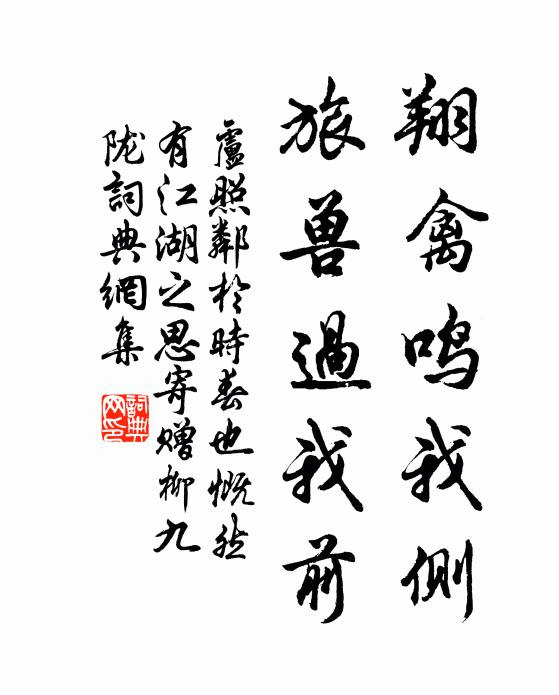 翔禽鳴我侧
旅兽過我前
盧照鄰於時春也慨然
有江湖之思寄赠柳九
陇詞典網集
詞典網印